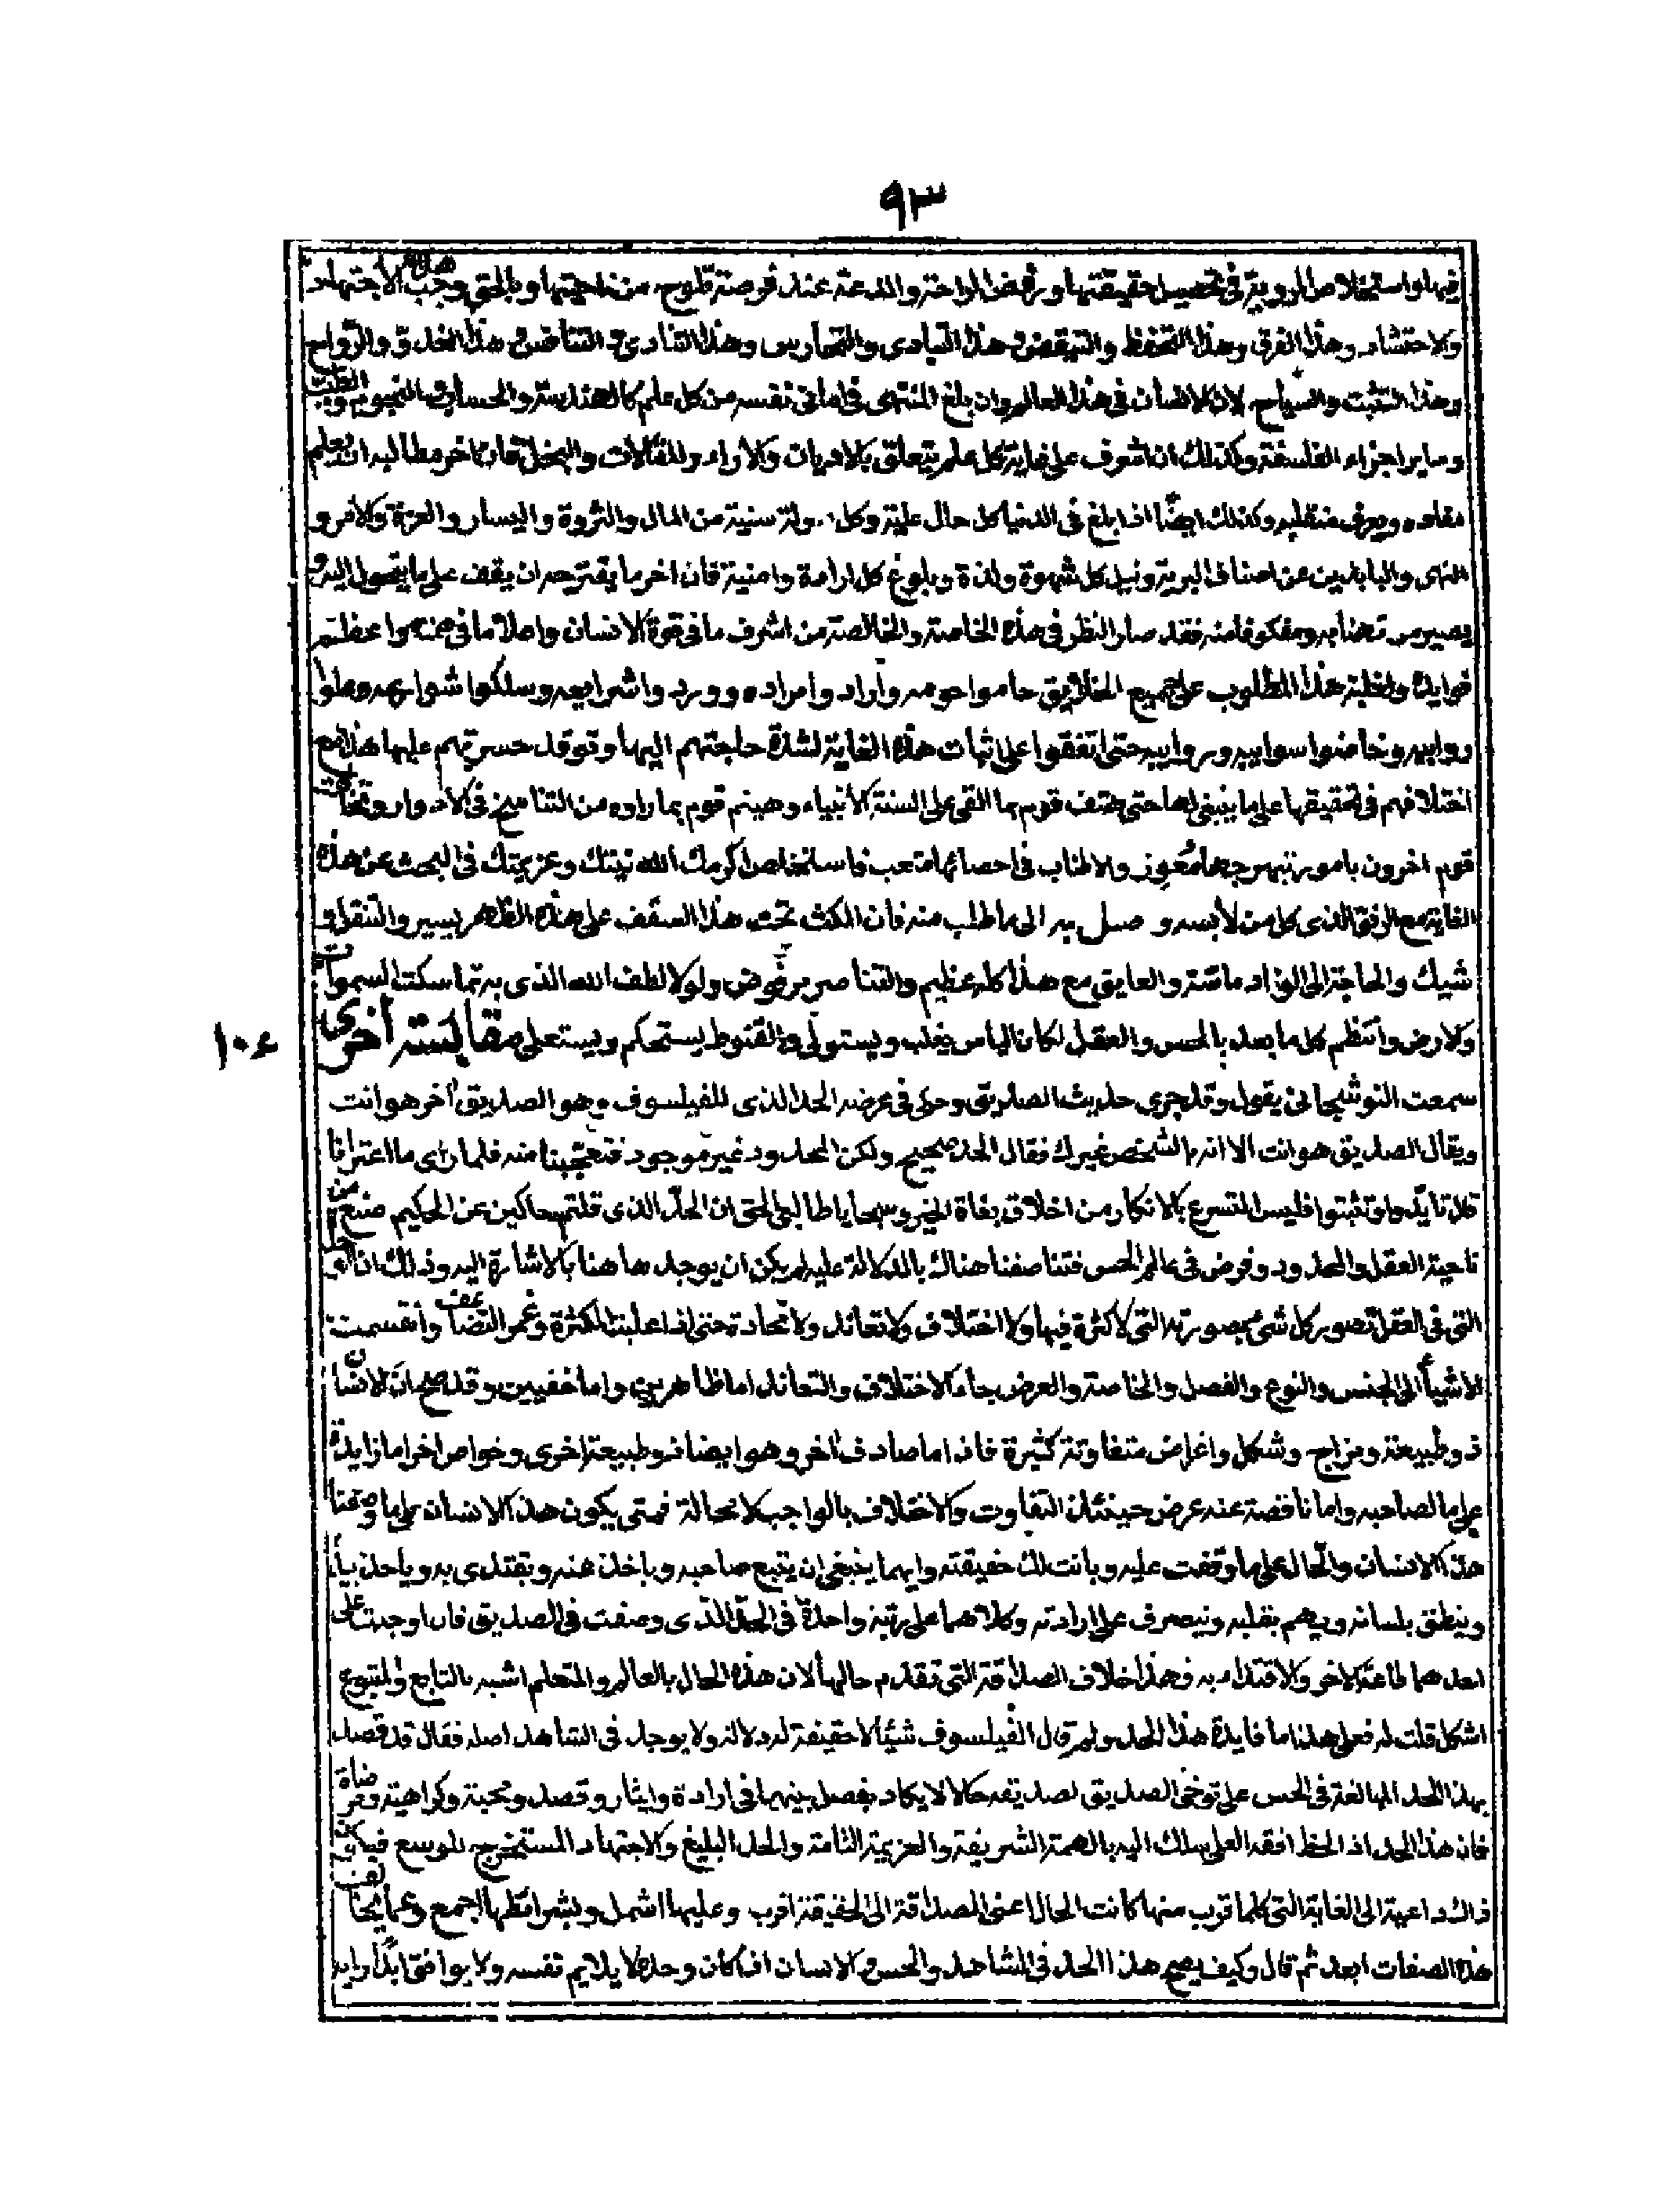 ٩٣
فيها واستخلاص الروية فى تحصيل حقيقتها ورفض الراحة والدعة عند فرصة تلوح من ناحيتها وبالحق وجب هذا الاجتهاد
والاحتشاد وهذا الفرق وهذا التحفظ والتيقض وهذا التبادى والتحارس وهذا التنادى و هذا الغدو والرواح
وهذا التثبت والسياح لان الانسان فى هذا العالم وان بلغ المنتهى فى امانى نفسه من كل علم كالهندسة والحساب والنجوم والطب
وساير اجزاء الفلسفة وكذلك ان اشرف على غاية كل علم يتعلق بالاديان والاراء والمقالات والنحل فان اخر مطالبه ان يعلم
معاده ويعرف منقلبه وكذلك ايضا اذا بلغ فى الدنيا كل حال علية وكل سنية من المال والثروة واليسار والعزة والامر و
النهى عن اصناف البرية ونيل كل شهوة ولذة وبلوغ كل ارادة وامنية فان اخر ما يقترحه ان يقف على ما يتحول اليه و
يصير فقد صار النظر فى هذه الخاصة والخالصة من اشرف ما فى قوة الانسان
فوايده ولغلبة هذا المطلوب على جميع الخلايق حاموا حومه وسلكوا شوارعه
حتى اتفقوا على اثبات هذه الغاية لشدة حاجتهم اليها وتوقد حسرتهم عليها هذا مع
اختلافهم فى تحقيقها على ما ينبغى لها حتى هتف قوم بما القى على السنة الانبياء وهينم قوم بما راوه من التناسخ فى الادوار
قوم اخرون بامور والاطناب فى احصائها متعب فاستخلص اكرمك الله نيتك وعزيمتك فى البحث عن هذه
الغاية مع الرفق الذى كل من لابسه وصل به الى ما طلب منه فان المكث تحت هذا السقف على هذا الظهر يسير والتنقل
شيك والحاجة الى الزاد ماسة والعايق مع هذا كله عظيم والتناصر مرفوض ولولا لطف الله الذى به تماسكت السموات
والارض وانتظم كل ما بعد بالحس والعقل لكان الياس يغلب ويستولى والقنوط يستحكم ويستعلى مقابسة اخرى
١٠٤
سمعت النوشجانى يقول وقد جرى حديث الصديق وحوى فى عرضه الحد الذى للفيلسوف وهو الصديق آخر هو انت
ويقال الصديق هو انت الا انه بالشخص غيرك فقال الحد صحيح ولكن المحدود غير موجود فتعجبنا منه فلما راى ما اعترانا
قال تايدوا وتثبتوا فليس التسرع بالانكار من اخلاق بغاة الخير وسجايا طالبى الحق ان الحد الذى قلتم حاكين عن الحكيم صنع من
ناحية العقل والمحدود وفرض فى عالم الحس هناك بالدلالة عليه لم يكن ان يوجد هاهنا بالاشارة اليه وذلك ان
التى فى العقل تصور كل شئ بصورته التى لا كثرة فيها ولا اختلاف ولا تعاند ولا تحاد حتى اذا علبت الكثرة وانقسمت
الاشيأ الى الجنس والنوع والفصل والخاصة والعرض جاء الاختلاف والتعاند اما ظاهرين واما خفيين وقد صح ان الانسان
ذو طبيعة ومزاج وشكل واغراض متفاوتة كثيرة فاذا ما صادف آخر وهو ايضا ذو طبيعة اخرى وخواص اخر اما زايدة
على ما لصاحبه واما ناقصة عنه عرض حينئذ التفاوت والاختلاف بالواجب لا محالة فمتى يكون هذا الانسان على ما وصفنا
هذا الانسان والحال على ما وقفت عليه وبانت لك حقيقته وايهما ينبغى ان يتبع صاحبه وياخذ عنه ويقتدى به
وينطق بلسانه ويهم بقلبه ويتصرف على ارادته وكلاهما على رتبة واحدة فى الحد الذى وصفت فى الصديق فان اوجبت على
احدهما طاعة الاخر والاقتداء به فهذا خلاف الصداقة التى تقدم حالها لان هذه الحال بالعالم والمتعلم اشبه بالتابع والمتبوع
اشكل قلت له فعلى هذا ما فايدة هذا الحد ولم قال الفيلسوف شيئا لا حقيقة له ولا يوجد فى الشاهد اصله فقال قد قصد
بهذا الحد المبالغة فى الحس على توخى الصديق لصديقه حالا لا يكاد يفصل بينهما فى ارادة وايثار وقصد ومحبة وكراهية ومرضاة
فان هذا الحد اذا سلك اليه بالهمة الشريفة والعزيمة التامة والجد البليغ والاجتهاد المستخرج للوسع
ذاك داعية الى الغاية التى كلما قرب منها كانت الحال اعنى الصداقة الى الحقيقة اقرب وعليها اشمل اجمع وعما يخالف
هذه الصفات ابعد ثم قال وكيف يصح هذا الحد فى الشاهد والحس والانسان اذا كان وحده لا يلايم نفسه ولا يوافق ابدا رايه